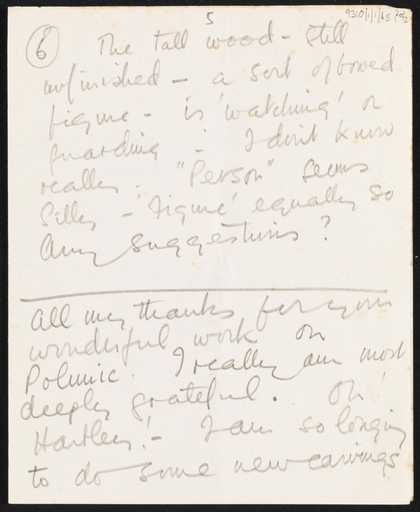 5
6 The tall wood - still
unfinished - a sort of bowed
figure - is 'watching' or
guarding - I don't know
really. "Person" seems
silly - 'figure' equally so
Any suggestions?
All my thanks for your
wonderful work on
Polunic. I really am most
deeply grateful. Oh
Hartley! - I am so longing
to do some new carvings